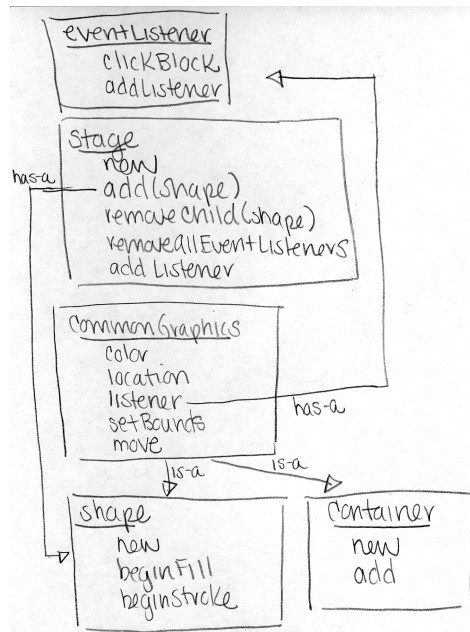 eventListener
clickBlock
addListener
Stage
new
has-a
add(shape)
removeChild(shape)
removeAllEventListeners
add Listener
CommonGraphics
color
location
listener
has-a
setBounds
move
is-a
is-a
shape
new
beginFill
beginStroke
Container
new
add